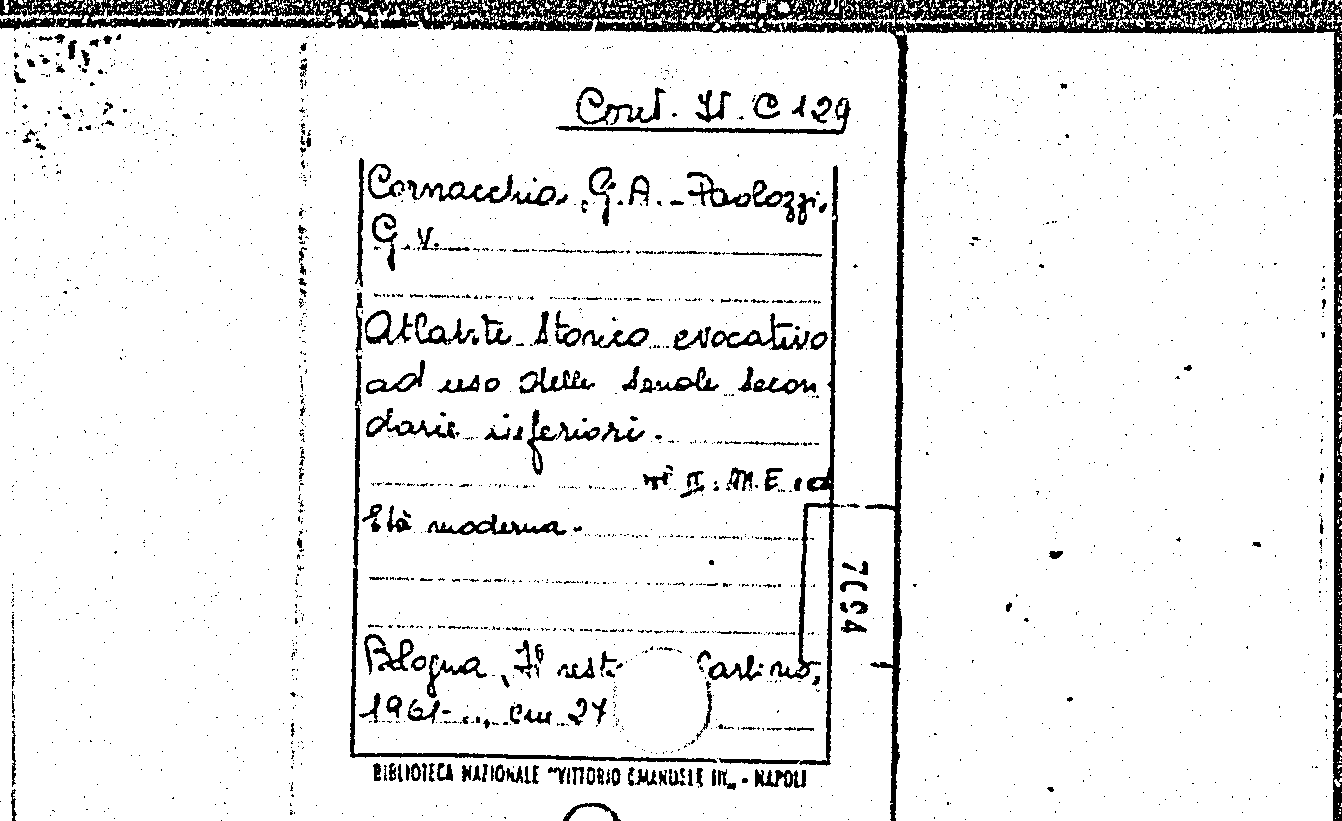 Cont. It. C 129
Cornacchia, G.A. - Paolozzi,
G.V.
Atlante storico evocativo
ad uso delle scuole secon-
darie inferiori.
II. M.E.
Età moderna.
7094
Bologna, Il rest Carlino,
1961- .., cm 27
BIBLIOTECA NAZIONALE "VITTORIO EMANUELE III„ - NAPOLI